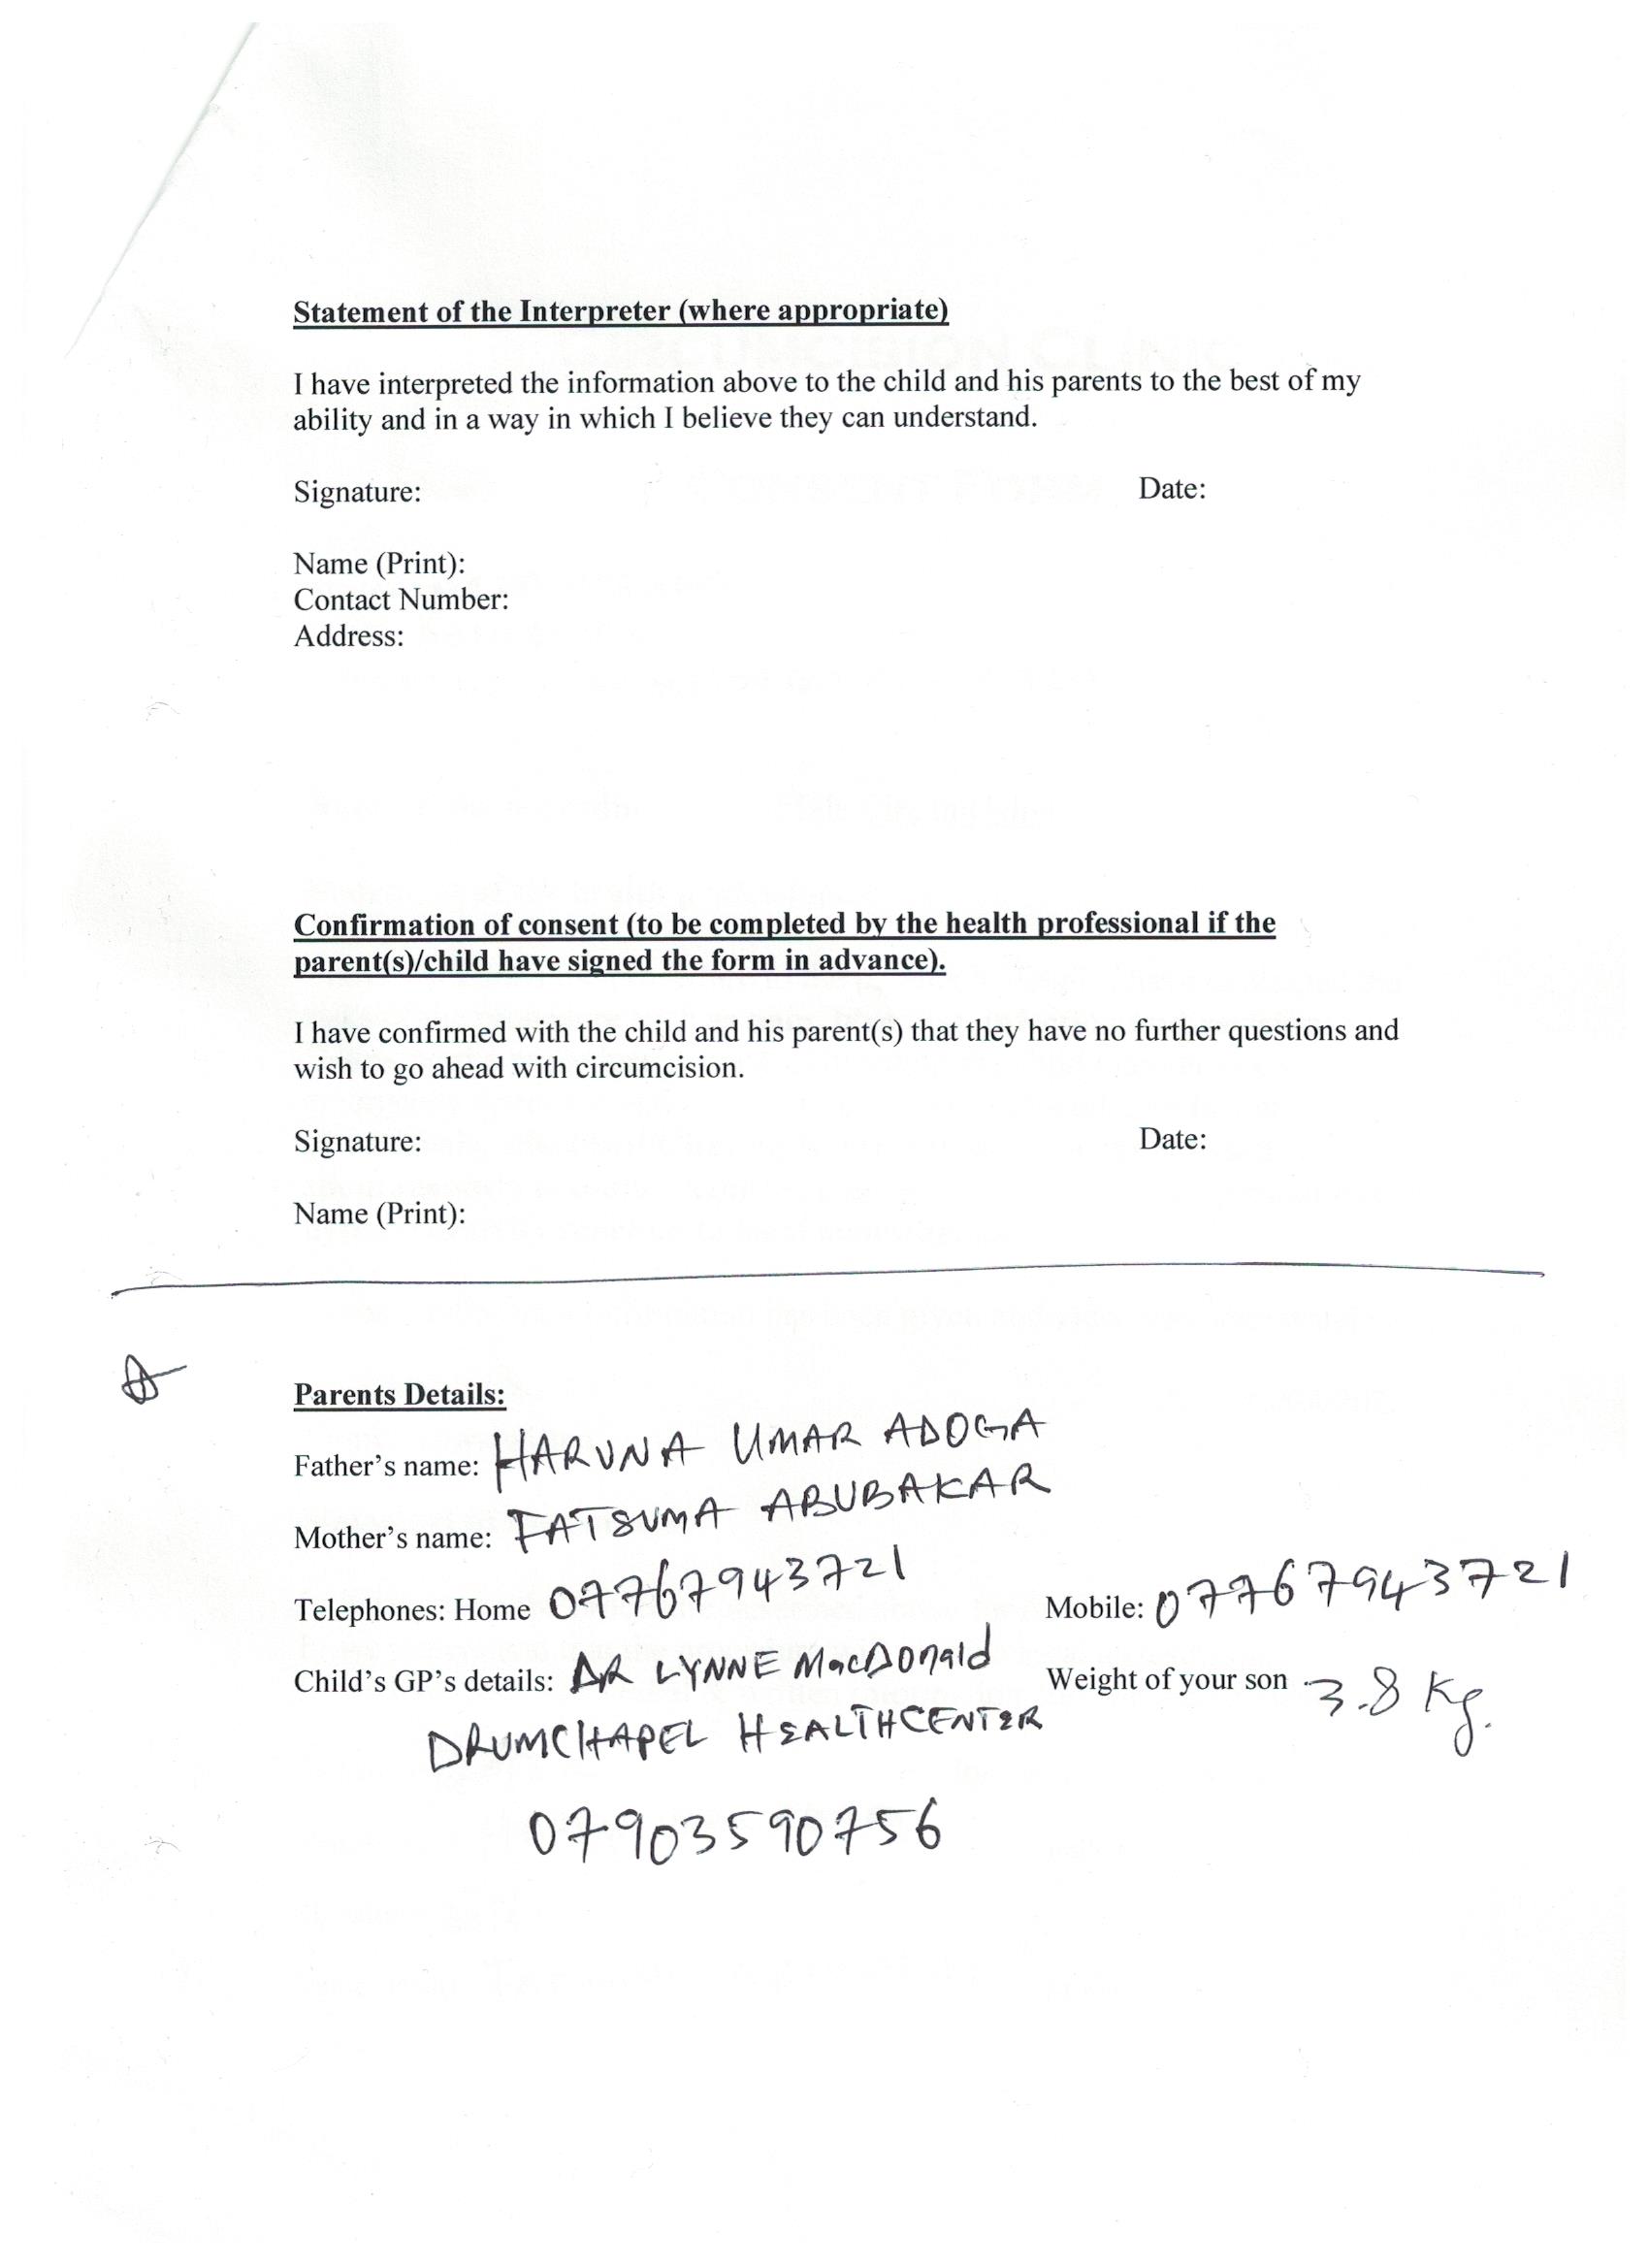 Statement of the Interpreter (where appropriate)
I have interpreted the information above to the child and his parents to the best of my
ability and in a way in which I believe they can understand.
Signature: Date:
Name (Print):
Contact Number:
Address:
Confirmation of consent (to be completed by the health professional if the
parent(s)/child have signed the form in advance).
I have confirmed with the child and his parent(s) that they have no further questions and
wish to go ahead with circumcision.
Signature: Date:
Name (Print):
Parents Details:
Father's name: HARUNA UMAR ADOGA
Mother's name: FATSUMA ABUBAKAR
Telephones: Home 07767943721 Mobile: 07767943721
Child's GP's details: DR LYNNE MacDonald Weight of your son 3.8 Kg.
DRUMCHAPEL HEALTHCENTER
07903590756